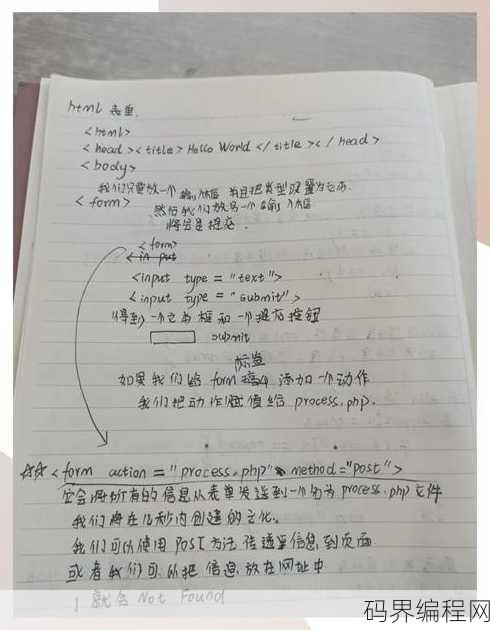 html 表单.
<html>
<head><title>Hello World</title></head>
<body>
我们只要放一个输入框 并且把类型设置为文本.
<form>
然后我们放另一个输入框
将会是提交.
<form>
<input
<input type = "text">
<input type = "submit">
得到 一个文本框和一个提交按钮
submit
标签
如果我们给 form 添加一个动作
我们把动作赋值给 process.php.
☆☆ <form action = "process.php" method = "post">
它会将所有的信息从表单发送到一个名为 process.php 文件
我们将在几秒内创建的文化.
我们可以使用 POST 方法 传递至信息到页面
或者我们可以把信息放在网址中
就会 Not Found
码界编程网